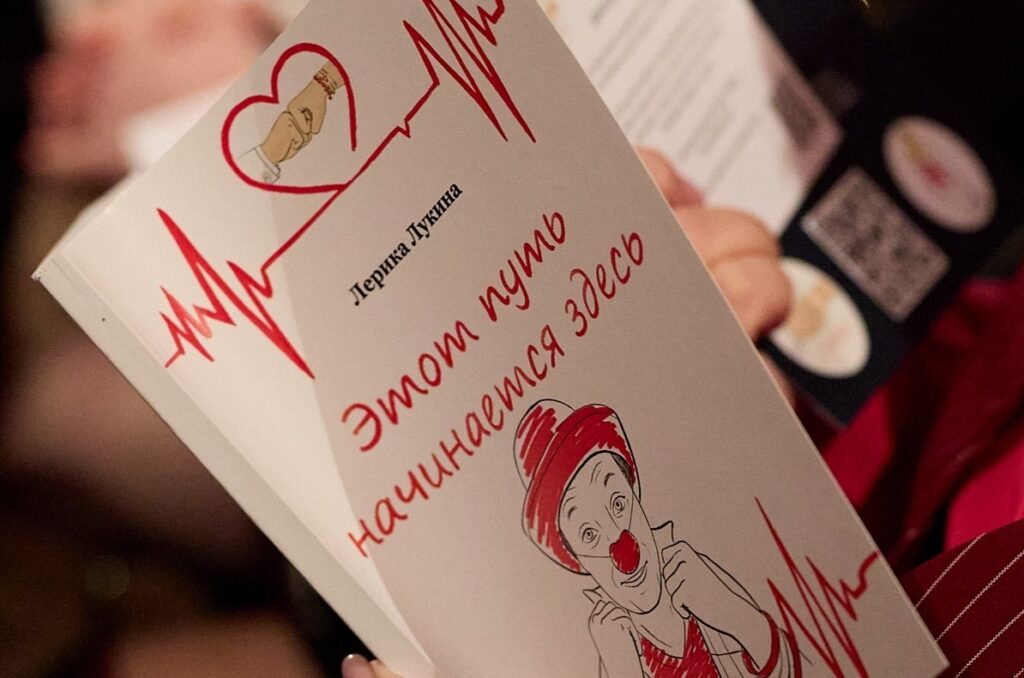 Лерика Лукина
Этот путь
начинается здесь